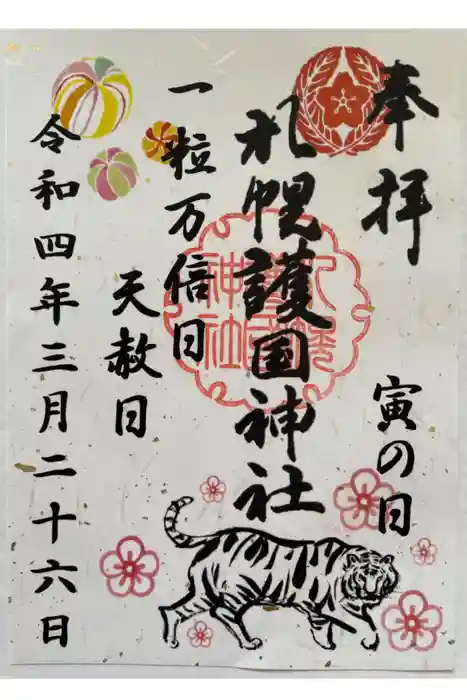 奉拝
寅の日
札幌護国神社
一粒万倍日
天赦日
令和四年三月二十六日
札幌護國神社